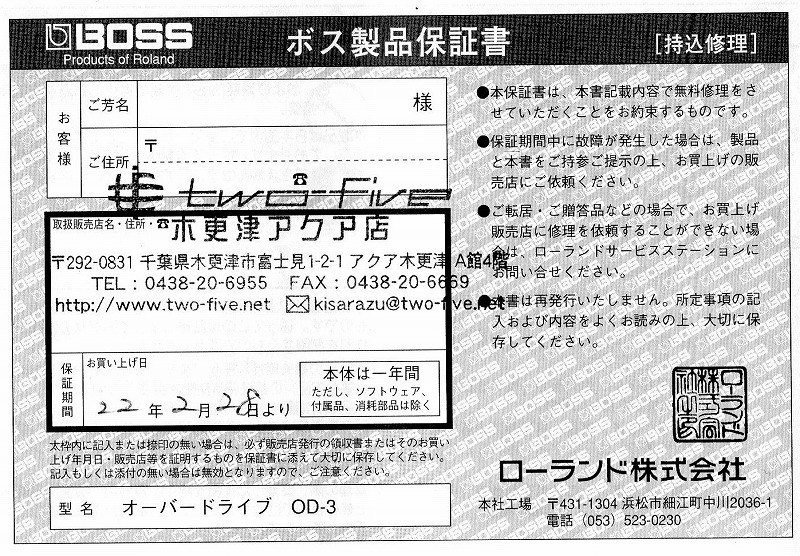 BOSS
Products of Roland
ボス製品保証書
[持込修理]
お客様
ご芳名
様
ご住所
〒
☎
two-five
取扱販売店名・住所・☎
木更津アクア店
〒292-0831 千葉県木更津市富士見1-2-1 アクア木更津 A館4階
TEL：0438-20-6955 FAX：0438-20-6669
http://www.two-five.net ✉kisarazu@two-five.net
保証期間
お買い上げ日
22年2月28日より
本体は一年間
ただし、ソフトウェア、
付属品、消耗部品は除く
太枠内に記入または捺印の無い場合は、必ず販売店発行の領収書またはそのお買い
上げ年月日・販売店等を証明するものを保証書に添えて大切に保存してください。
記入もしくは添付の無い場合は無効となりますので、ご注意ください。
型名
オーバードライブ OD-3
●本保証書は、本書記載内容で無料修理をさ
せていただくことをお約束するものです。
●保証期間中に故障が発生した場合は、製品
と本書をご持参ご提示の上、お買上げの販
売店にご依頼ください。
●ご転居・ご贈答品などの場合で、お買上げ
販売店に修理を依頼することができない場
合は、ローランドサービスステーションに
お問い合せください。
本書は再発行いたしません。所定事項の記
入および内容をよくお読みの上、大切に保
存してください。
ローランド株式会社
本社工場 〒431-1304 浜松市細江町中川2036-1
電話 (053) 523-0230